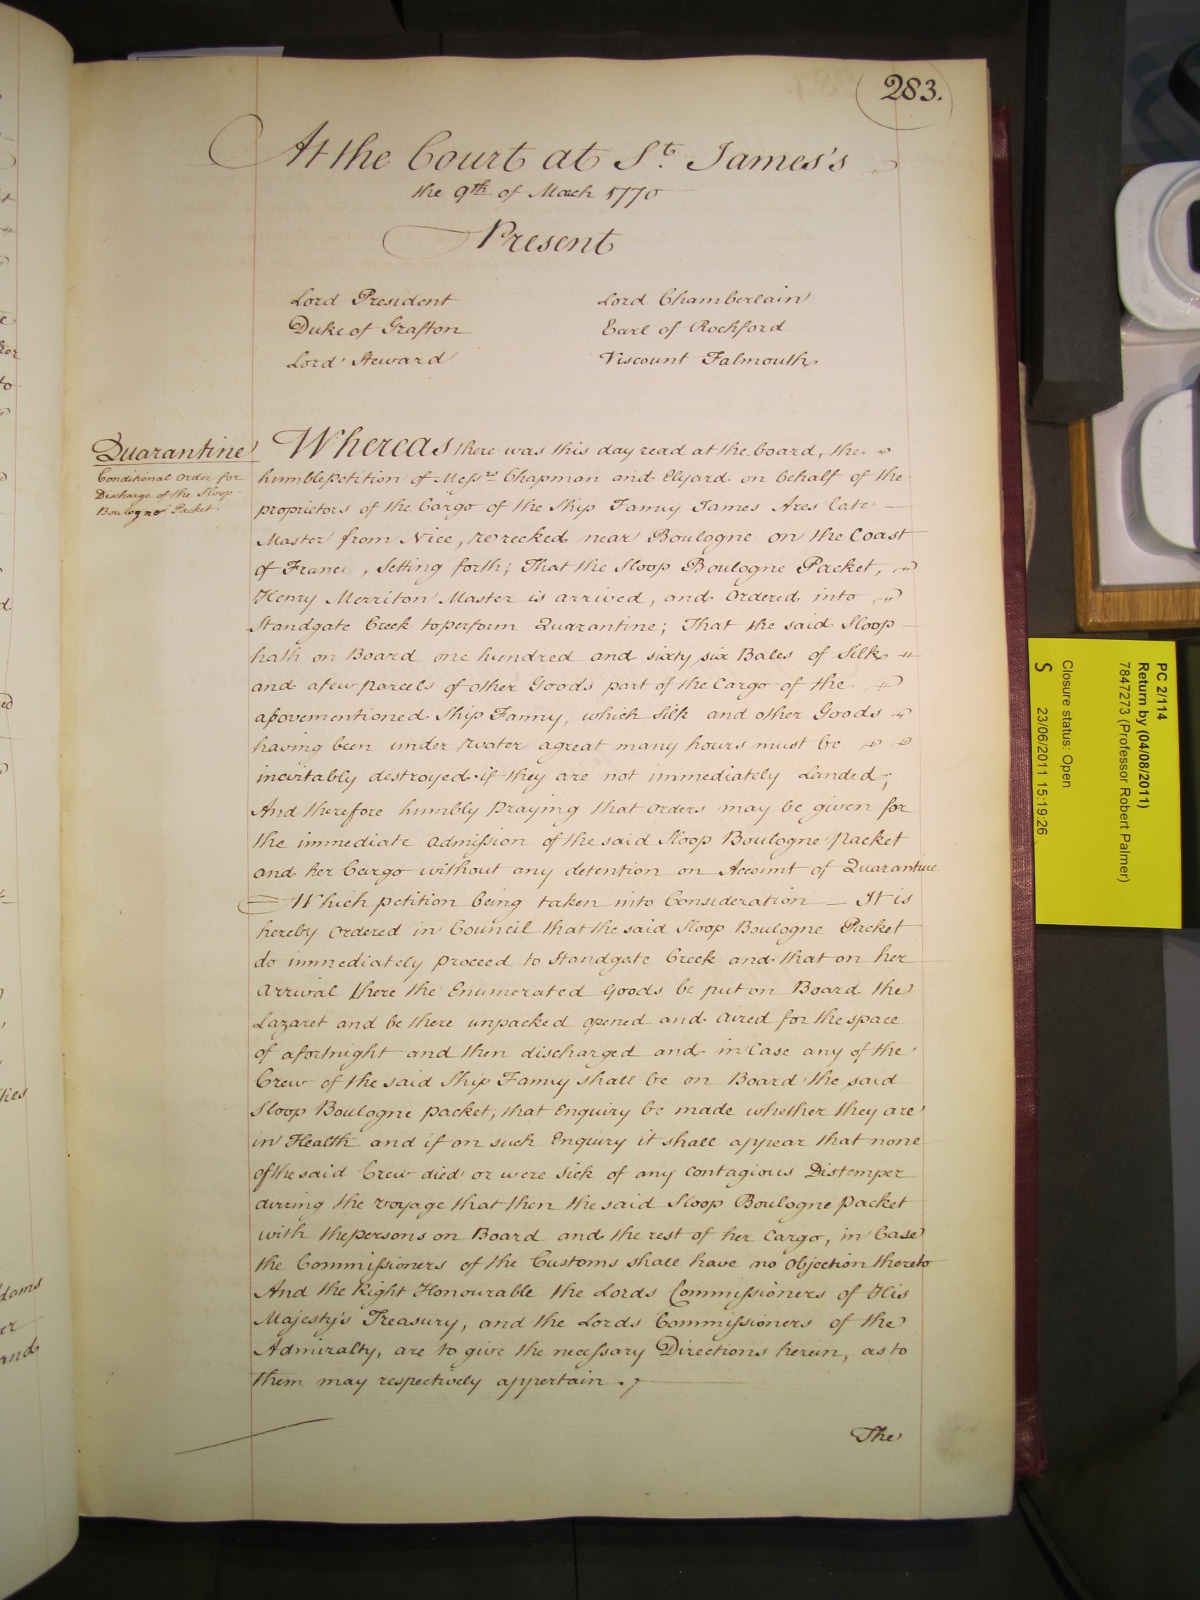 283.
At the Court at St. James's
the 9th of March 1770
Present
Lord President Lord Chamberlain
Duke of Grafton Earl of Rochford
Lord Steward Viscount Falmouth
Quarantine
Conditional Order for
Discharge of the Sloop
Boulogne Packet.
Whereas there was this day read at the board, the
humble petition of Messrs Chapman and Elyard on behalf of the
proprietors of the Cargo of the Ship Fanny James Ares late
Master from Nice, wrecked near Boulogne on the Coast
of France, Setting forth; That the Sloop Boulogne Packet,
Henry Merriton Master is arrived, and Ordered into
Standgate Creek to perform Quarantine; That the said Sloop
hath on Board one hundred and sixty six Bales of Silk
and a few parcels of other Goods part of the Cargo of the
abovementioned Ship Fanny, which Silk and other Goods
having been under Water a great many hours must be
inevitably destroyed if they are not immediately Landed;
And therefore humbly praying that orders may be given for
the immediate Admission of the said Sloop Boulogne packet
and her Cargo without any detention on Account of Quarantine
Which petition being taken into Consideration — It is
hereby Ordered in Council that the said Sloop Boulogne Packet
do immediately proceed to Standgate Creek and that on her
Arrival there the Enumerated Goods be put on Board the
Lazaret and be there unpacked opened and aired for the space
of a fortnight and then discharged and in Case any of the
Crew of the said Ship Fanny shall be on Board the said
Sloop Boulogne packet, that Enquiry be made whether they are
in Health and if on such Enquiry it shall appear that none
of the said Crew died or were sick of any contagious Distemper
during the voyage that then the said Sloop Boulogne packet
with the persons on Board and the rest of her Cargo, in Case
the Commissioners of the Customs shall have no Objection thereto
And the Right Honourable the Lords Commissioners of His
Majesty's Treasury, and the Lords Commissioners of the
Admiralty, are to give the necessary Directions herein, as to
them may respectively appertain.
The
PC 2/114
Return by (04/08/2011)
7847273 (Professor Robert Palmer)
Closure status: Open
S 23/06/2011 15:19:26